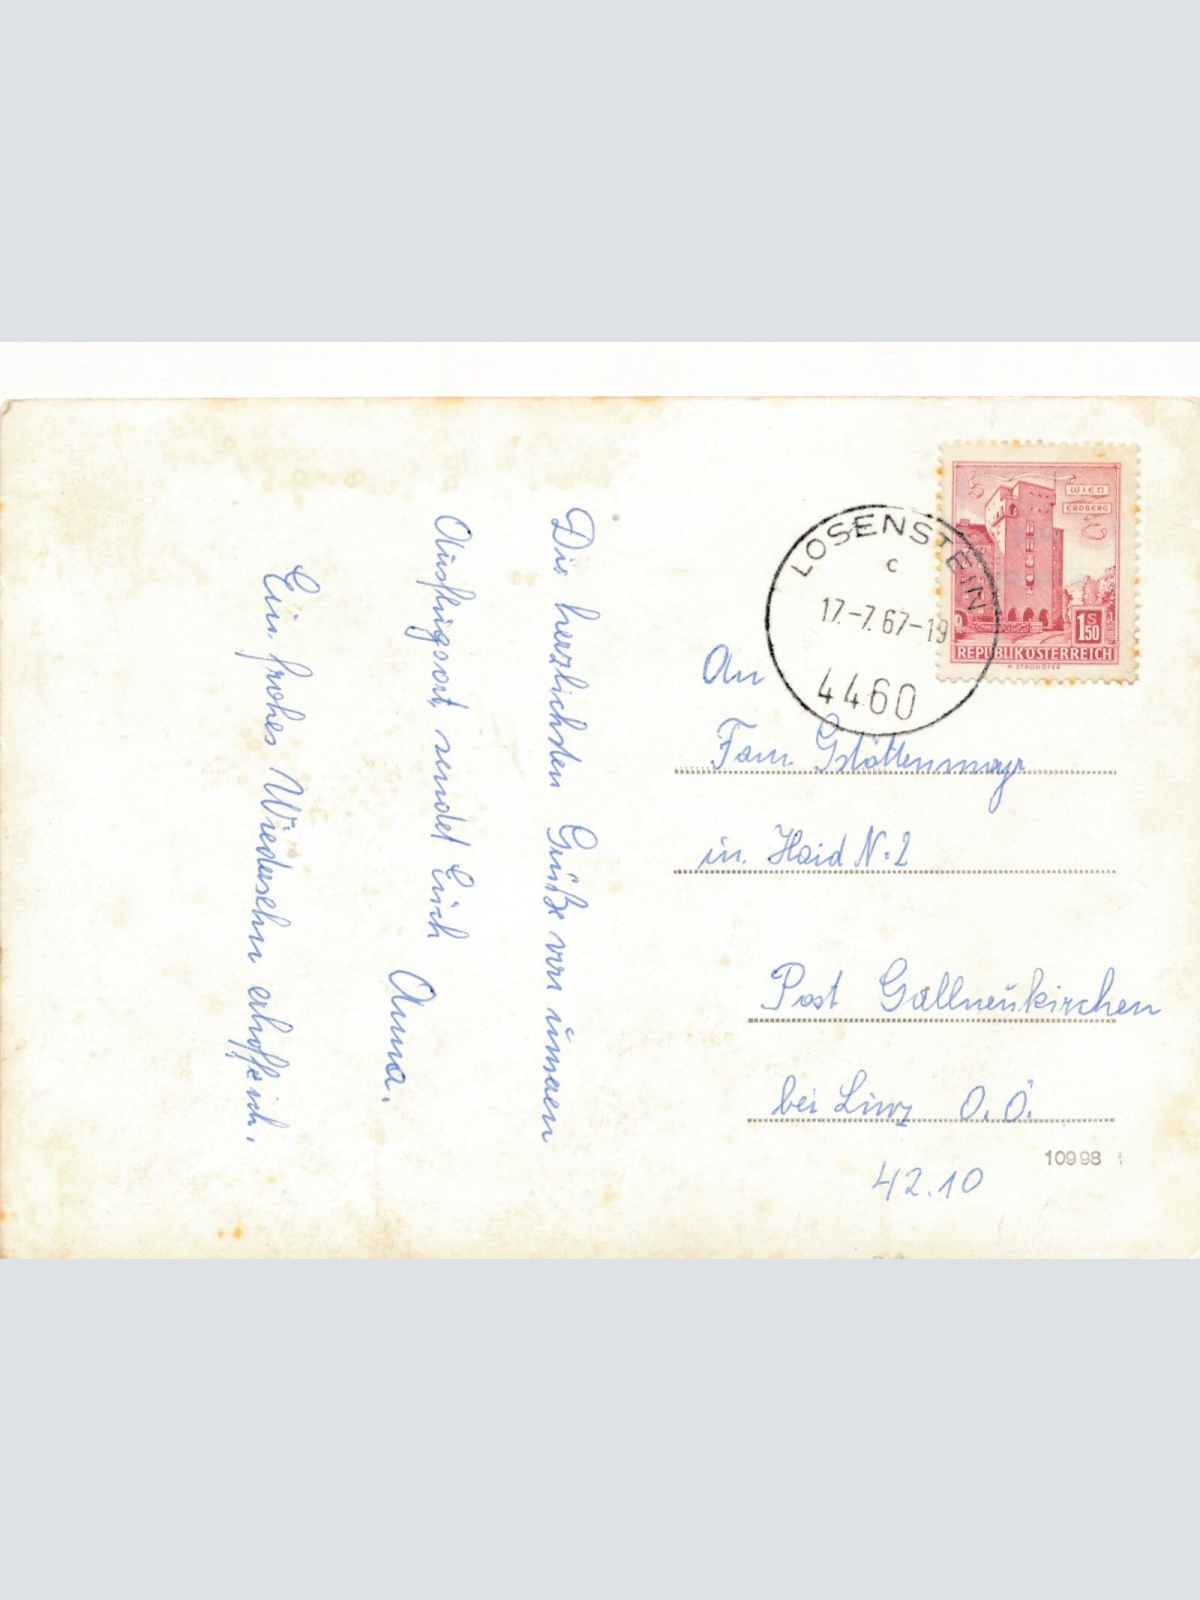 Die herzlichsten Grüße von unserem
Ausflugsort sendet Euch
Anna.
Ein frohes Wiedersehn erhoffe ich.
WIEN
ERDBERG
1 S 50
REPUBLIK ÖSTERREICH
H. STROHOFER
LOSENSTEIN
c
17.-7.67-19
4460
An
Fam. Gstöttenmayr
in Haid N: 2
Post Gallneukirchen
bei Linz O.Ö.
42.10
10998